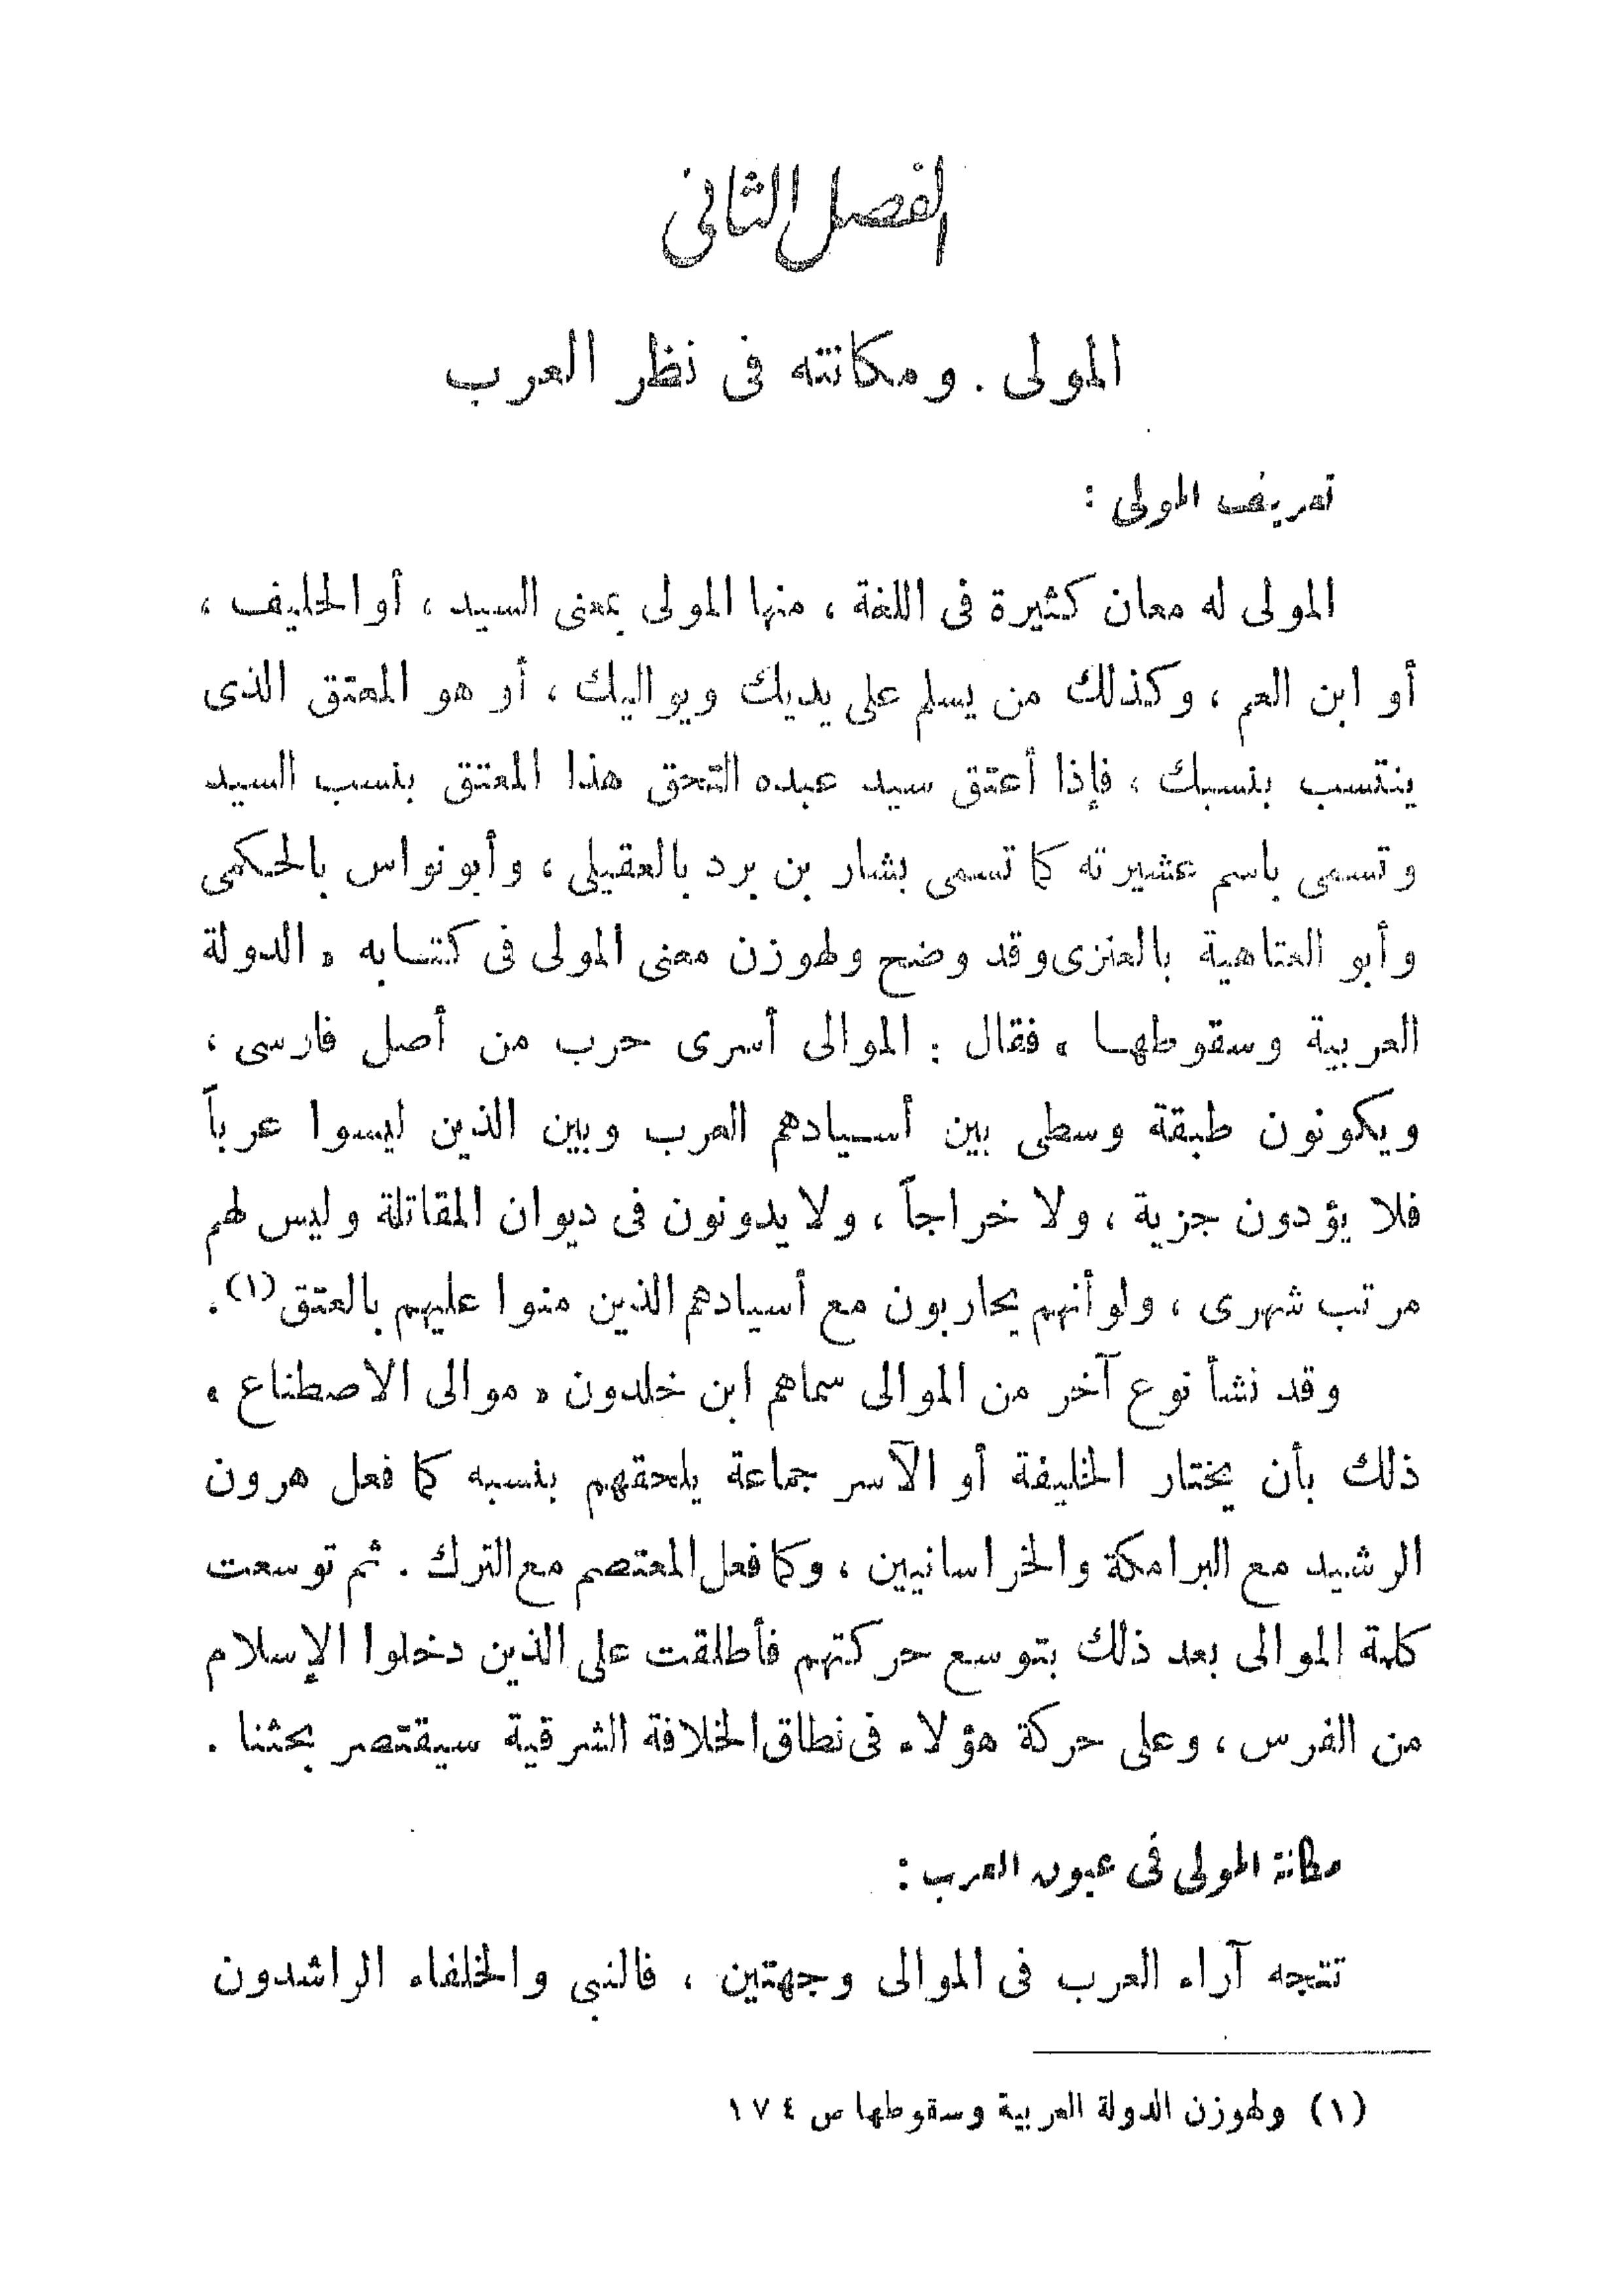 الفصل الثانى
المولى . ومكانته فى نظر العرب
تعريف المولى :
المولى له معان كثيرة فى اللغة ، منها المولى بمعنى السيد ، أو الحليف ،
أو ابن العم ، وكذلك من يسلم على يديك ويواليك ، أو هو المعتق الذى
ينتسب بنسبك ، فإذا أعتق سيد عبده التحق هذا المعتق بنسب السيد
وتسمى باسم عشيرته كما تسمى بشار بن برد بالعقيلى ، وأبو نواس بالحكمى
وأبو العتاهية بالعنزى وقد وضح ولهوزن معنى المولى فى كتابه « الدولة
العربية وسقوطها » فقال : الموالى أسرى حرب من أصل فارسى ،
ويكونون طبقة وسطى بين أسيادهم العرب وبين الذين ليسوا عرباً
فلا يؤدون جزية ، ولا خراجاً ، ولا يدونون فى ديوان المقاتلة وليس لهم
مرتب شهرى ، ولو أنهم يحاربون مع أسيادهم الذين منوا عليهم بالعتق (١) .
وقد نشأ نوع آخر من الموالى سماهم ابن خلدون « موالى الاصطناع »
ذلك بأن يختار الخليفة أو الآسر جماعة يلحقهم بنسبه كما فعل هرون
الرشيد مع البرامكة والخراسانيين ، وكما فعل المعتصم مع الترك . ثم توسعت
كلمة الموالى بعد ذلك بتوسع حركتهم فأطلقت على الذين دخلوا الإسلام
من الفرس ، وعلى حركة هؤلاء فى نطاق الخلافة الشرقية سيقتصر بحثنا .
مكانة المولى فى عيون العرب :
تتجه آراء العرب فى الموالى وجهتين ، فالنبى والخلفاء الراشدون
(١) ولهوزن الدولة العربية وسقوطها ص ١٧٤